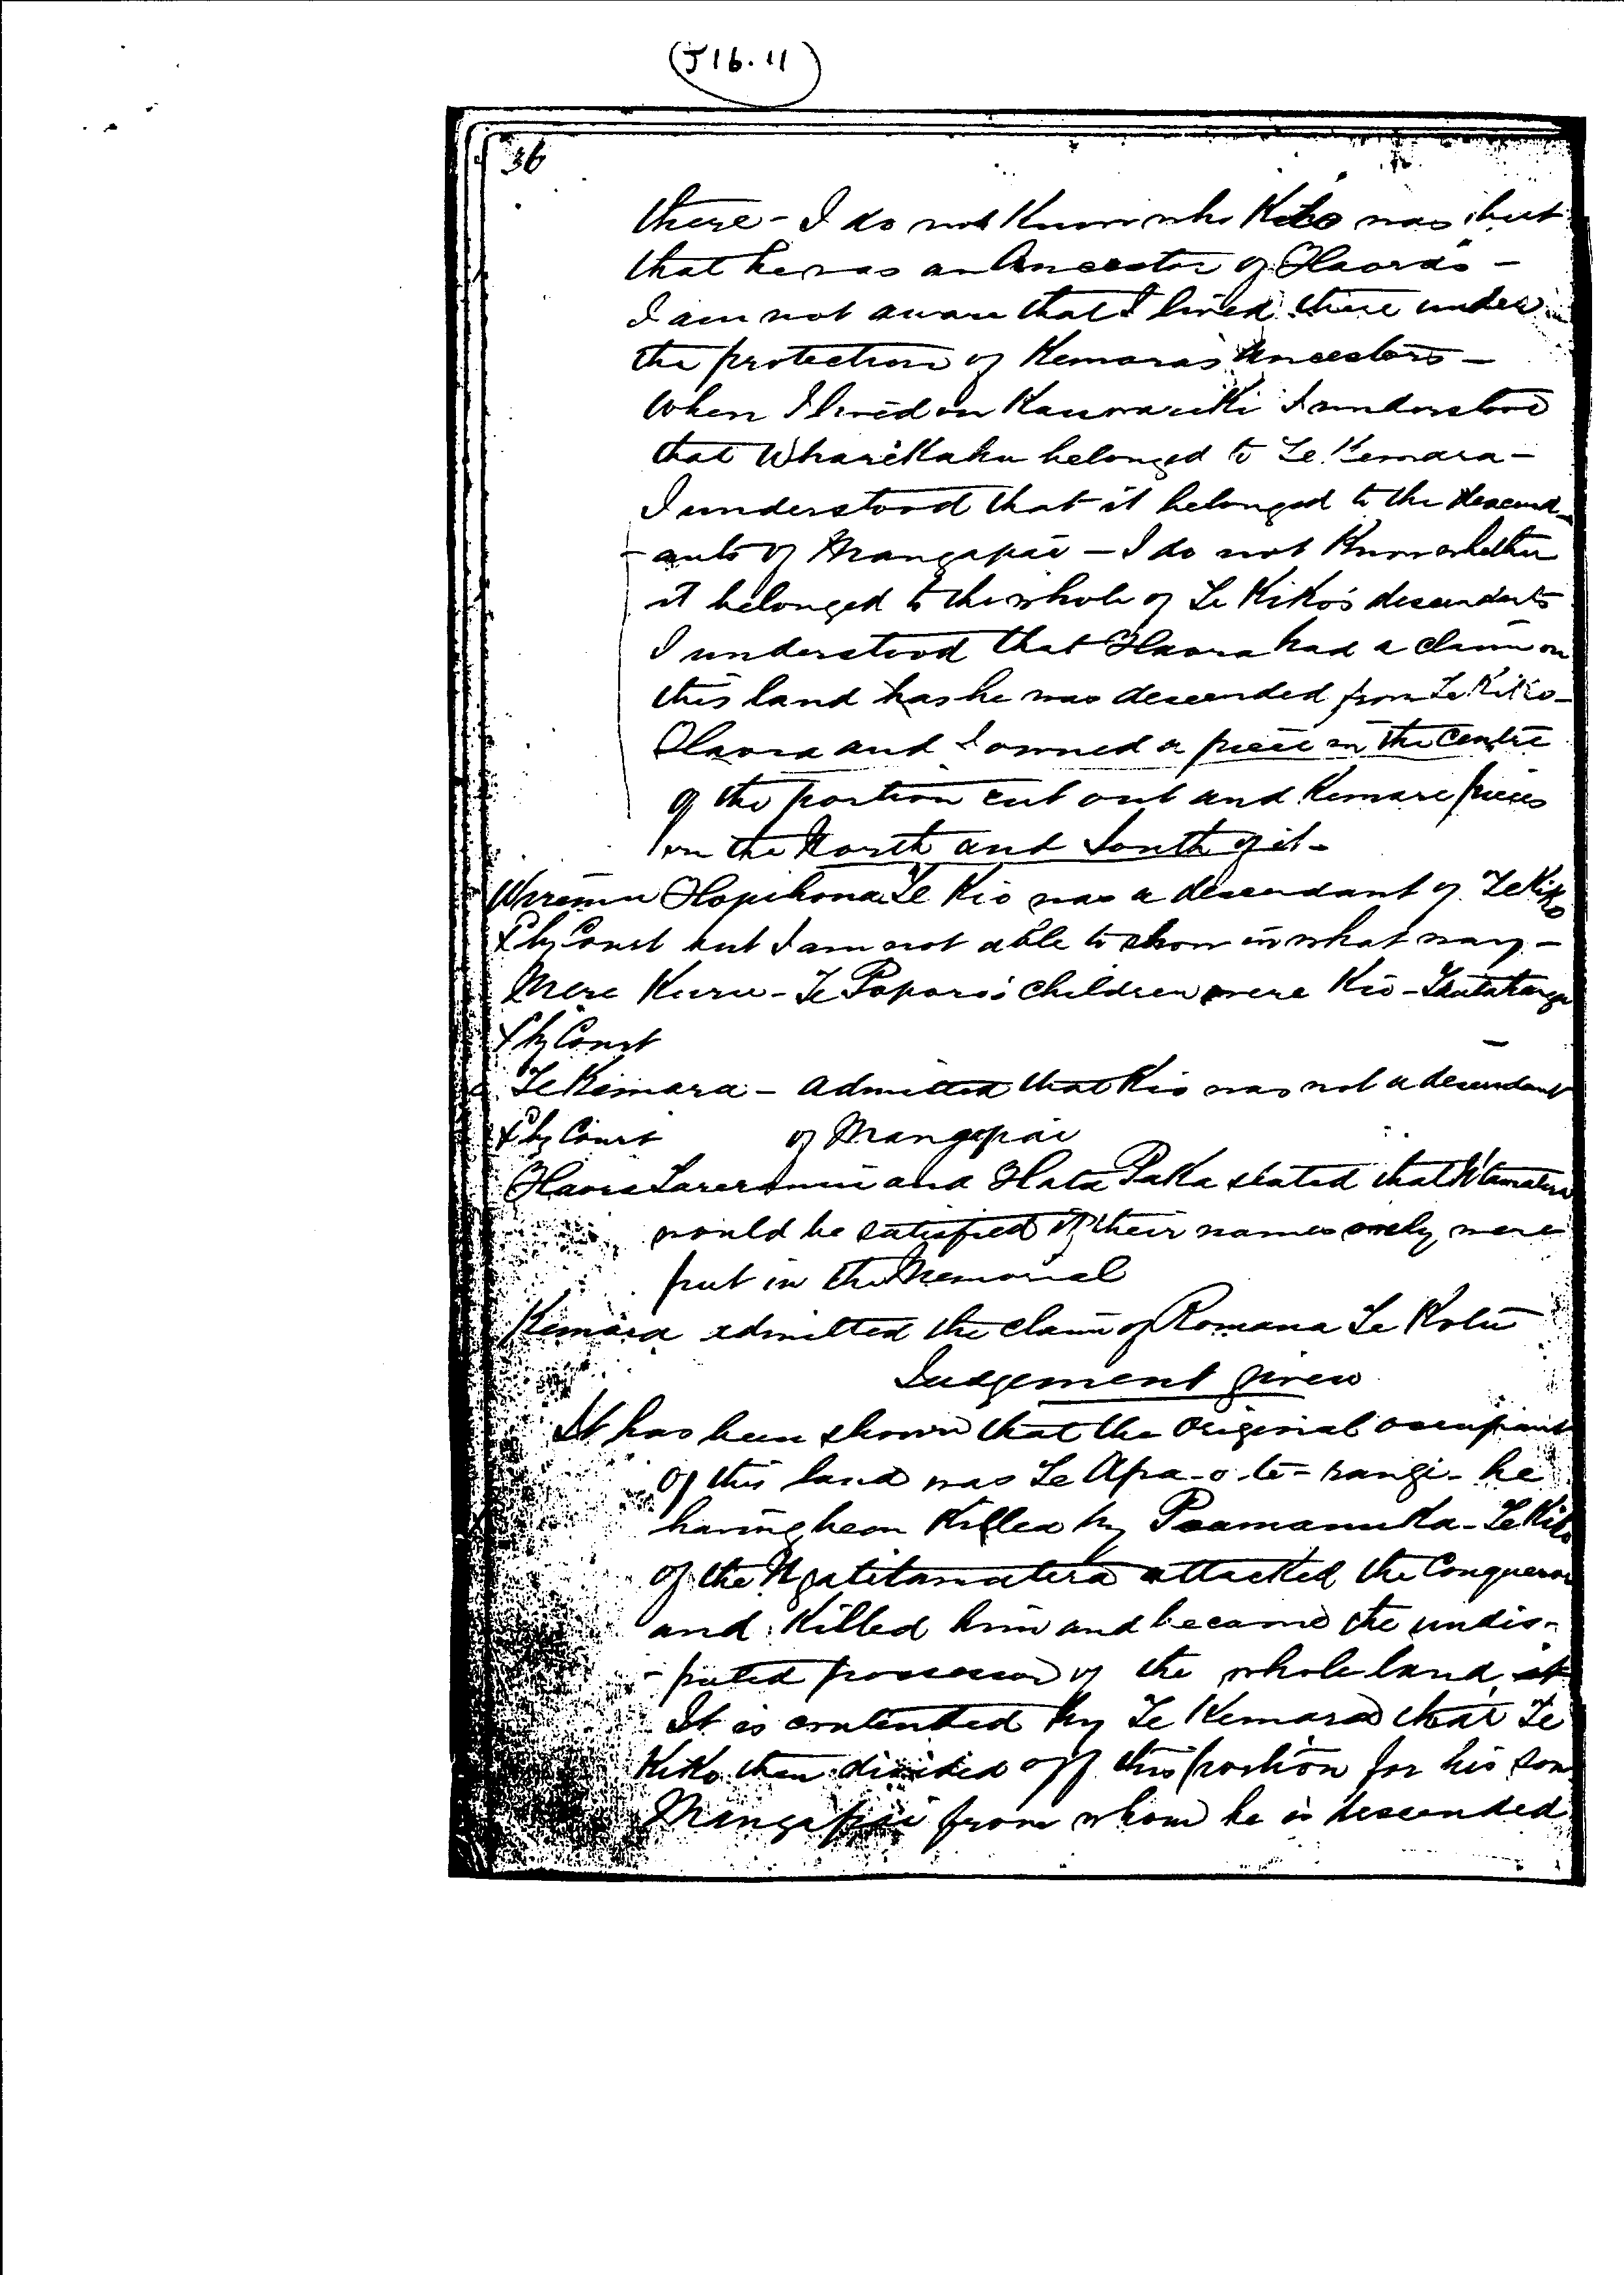 (J16.11)
36
there - I do not know who Kiko was but
that he was an Ancestor of Haora's -
I am not aware that I lived there under
the protection of Kemara's Ancestors -
When I lived on Kauwaeriki I understood
that Wharekahu belonged to Te Kemara -
I understood that it belonged to the descend-
-ants of Mangapai - I do not know whether
it belonged to the whole of Te Kiko's descendants
I understood that Haora had a claim on
this land has he was descended from Te Kiko -
Haora and I owned a piece in the centre
of the portion cut out and Kemara pieces
on the North and South of it -
Wiremu Hopihona Te Kio was a descendant of Te Kiko
X by Court but I am not able to show in what way -
Mere Kuru - Te Poporo's children were Kio -
X by Court
Te Kemara - admitted that Kio was not a descendant
X by Court of Mangapai
Haora Tareranui and Hata Paka stated that N'tamatera
would be satisfied if their names only were
put in the Memorial
Kemara admitted the claim of Romana Te
Judgement given
It has been shown that the original occupant
of this land was Te Apa-o-te-rangi - he
having been killed by Poamanuka - Te Kiko
of the Ngatitamatera attacked the Conqueror
and killed him and became the undis-
-puted possessor of the whole land
It is contended by Te Kemara that Te
Kiko then divided off this portion for his son
Mangapai from whom he is descended